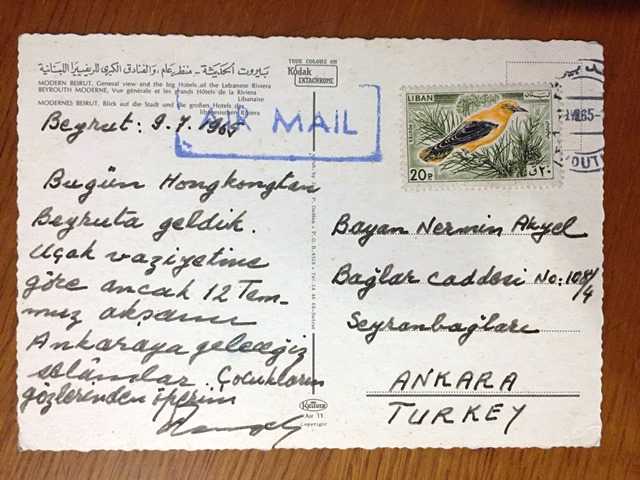 بيروت الحديثة - منظر عام، والفنادق الكبرى للريفييرا اللبنانية
MODERN BEIRUT, General view and the big Hotels of the Lebanese Riviera
BEYROUTH MODERNE, Vue générale et les grands Hôtels de la Riviera
Libanaise
MODERNES BEIRUT, Blick auf die Stadt und die großen Hotels der
libanesischen Riviera
TRUE COLORS ON
Kodak
EKTACHROME
AIR MAIL
Beyrut: 9.7.1965
Bugün Hongkongtan
Beyruta geldik.
Uçak vaziyetine
göre ancak 12 Tem-
muz akşamı
Ankaraya geleceğiz
selâmlar.. Çocukların
gözlerinden öperim
LIBAN
20P
٢٠
1965
OUTH
Bayan Nermin Akyel
Bağlar caddesi No: 108/
/4
Seyranbağları
ANKARA
TURKEY
Kruger
Air 11
Copyright